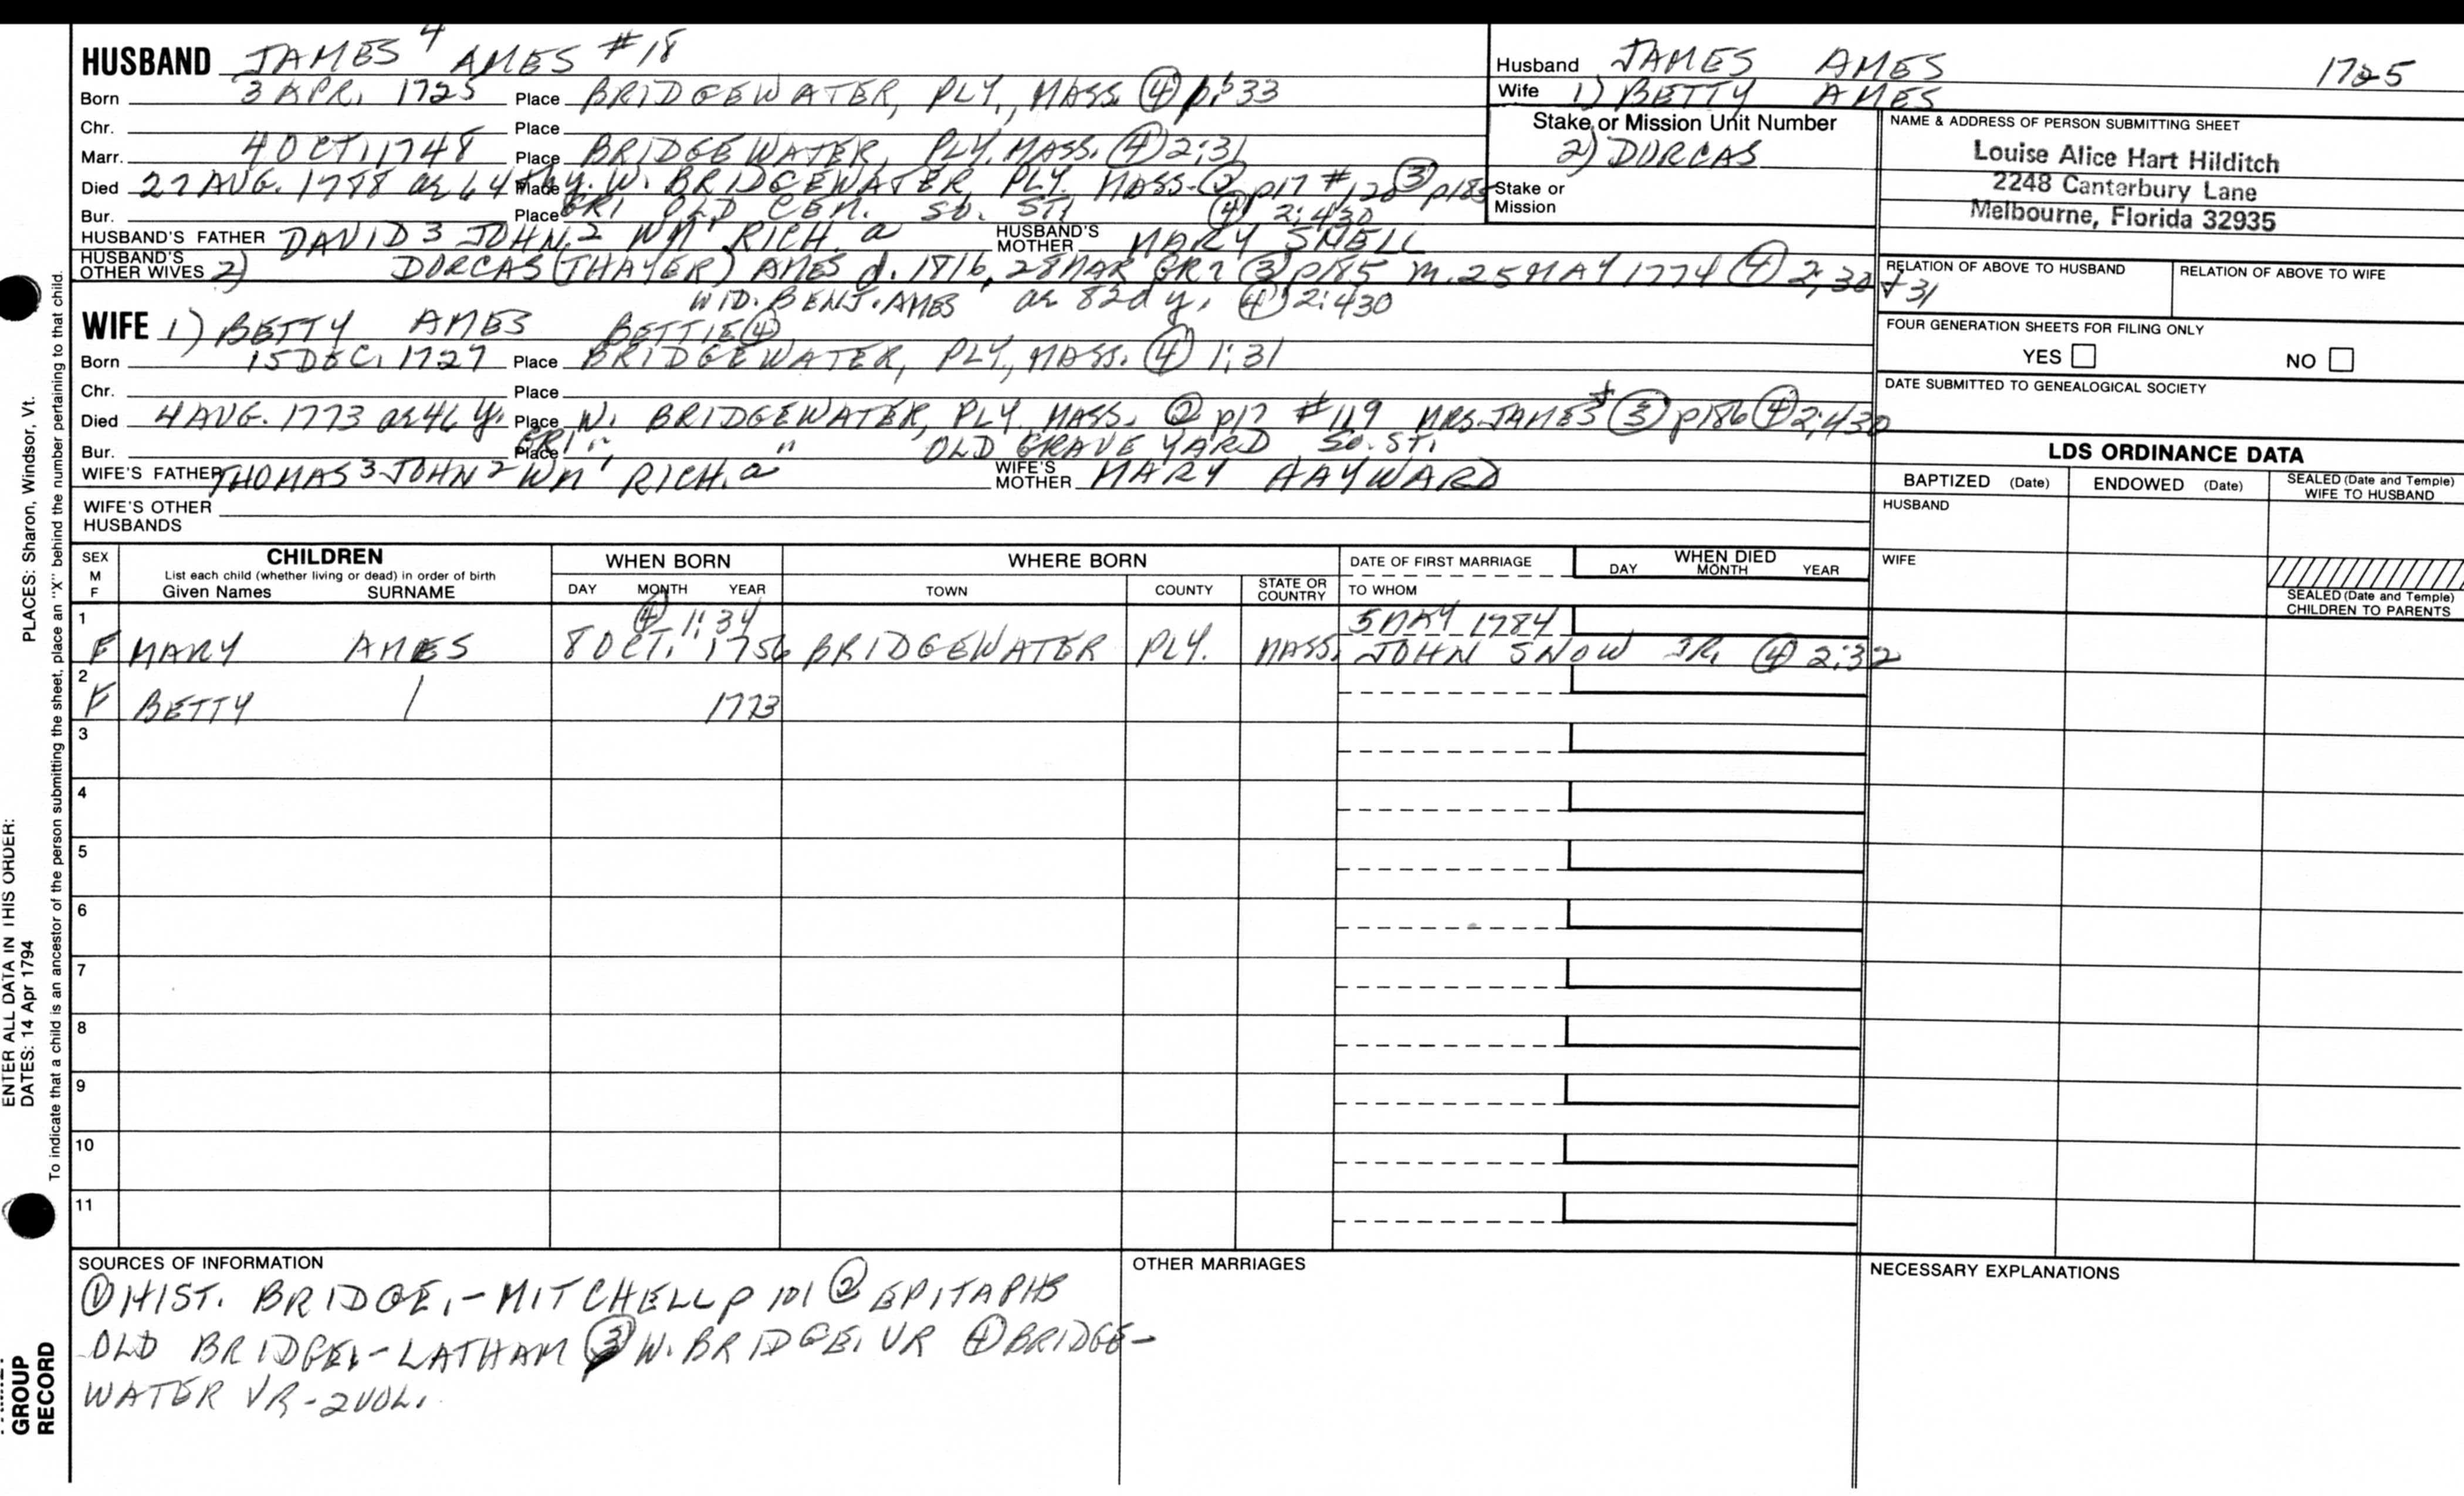 HUSBAND JAMES 4 AMES #18
Born 3 APR. 1725 Place BRIDGEWATER, PLY., MASS. ④ p. 33
Chr. Place
Marr. 4 OCT. 1748 Place BRIDGEWATER, PLY. MASS. ④ 2:31
Died 27 AUG. 1788 ae 64 y. Place W. BRIDGEWATER, PLY. MASS. ② p17 #120 ③ p185
Bur. Place GR1 OLD CEM. SO. ST. ④ 2:430
HUSBAND'S FATHER DAVID 3 JOHN 2 WM 1 RICH. a HUSBAND'S MOTHER MARY SNELL
HUSBAND'S OTHER WIVES 2) DORCAS (THAYER) AMES d. 1816, 28 MAR GR1 ③ p185 m. 25 MAY 1774 ④ 2;30 + 31
WID. BENJ. AMES ae 82d y. ④ 2:430
WIFE 1) BETTY AMES BETTIE ④
Born 15 DEC. 1727 Place BRIDGEWATER, PLY., MASS. ④ 1:31
Chr. Place
Died 4 AUG. 1773 ae 46 y. Place W. BRIDGEWATER, PLY. MASS. ② p17 #119 MRS. JAMES ③ p186 ④ 2:430
Bur. Place GR1 " " OLD GRAVE YARD SO. ST.
WIFE'S FATHER THOMAS 3 JOHN 2 WM 1 RICH. a WIFE'S MOTHER MARY HAYWARD
WIFE'S OTHER HUSBANDS
Husband JAMES AMES 1725
Wife 1) BETTY AMES
Stake or Mission Unit Number
2) DORCAS
Stake or Mission
NAME & ADDRESS OF PERSON SUBMITTING SHEET
Louise Alice Hart Hilditch
2248 Canterbury Lane
Melbourne, Florida 32935
RELATION OF ABOVE TO HUSBAND RELATION OF ABOVE TO WIFE
FOUR GENERATION SHEETS FOR FILING ONLY
YES NO
DATE SUBMITTED TO GENEALOGICAL SOCIETY
LDS ORDINANCE DATA
BAPTIZED (Date) ENDOWED (Date) SEALED (Date and Temple) WIFE TO HUSBAND
HUSBAND
WIFE
SEALED (Date and Temple) CHILDREN TO PARENTS
SEX M F CHILDREN WHEN BORN WHERE BORN DATE OF FIRST MARRIAGE WHEN DIED
List each child (whether living or dead) in order of birth
Given Names SURNAME DAY MONTH YEAR TOWN COUNTY STATE OR COUNTRY TO WHOM DAY MONTH YEAR
1 ④ 1:34 5 MAY 1784
F MARY AMES 8 OCT. 1756 BRIDGEWATER PLY. MASS. JOHN SNOW JR. ④ 2:32
2
F BETTY 1773
3
4
5
6
7
8
9
10
11
SOURCES OF INFORMATION
① HIST. BRIDGE. - MITCHELL p 101 ② EPITAPHS
OLD BRIDGE. - LATHAM ③ W. BRIDGE. VR ④ BRIDGE-
WATER VR - 2 VOL.
OTHER MARRIAGES
NECESSARY EXPLANATIONS
PLACES: Sharon, Windsor, Vt.
ENTER ALL DATA IN THIS ORDER:
DATES: 14 Apr 1794
To indicate that a child is an ancestor of the person submitting the sheet, place an "X" behind the number pertaining to that child.
GROUP
RECORD